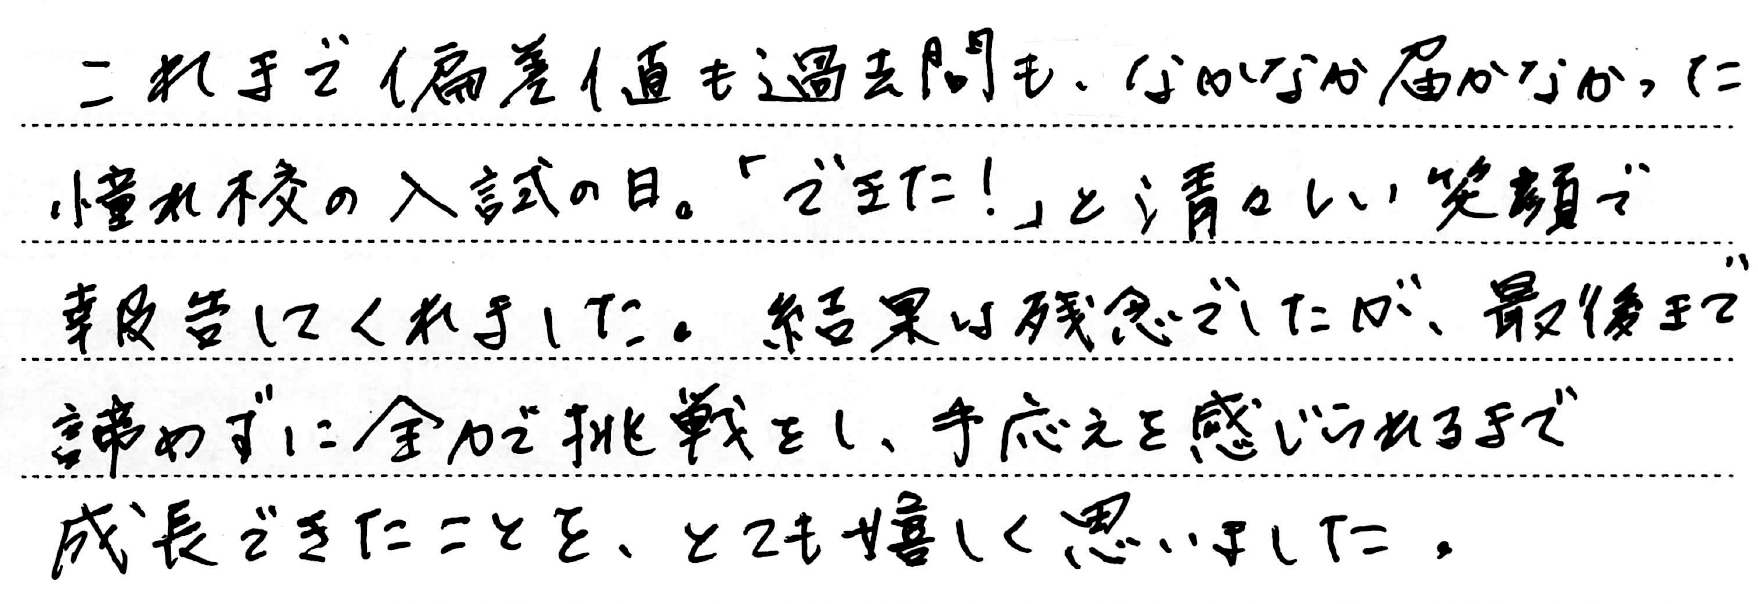 これまで偏差値も過去問も、なかなか届かなかった
憧れ校の入試の日。「できた！」と清々しい笑顔で
報告してくれました。結果は残念でしたが、最後まで
諦めずに全力で挑戦をし、手応えを感じられるまで
成長できたことを、とても嬉しく思いました。